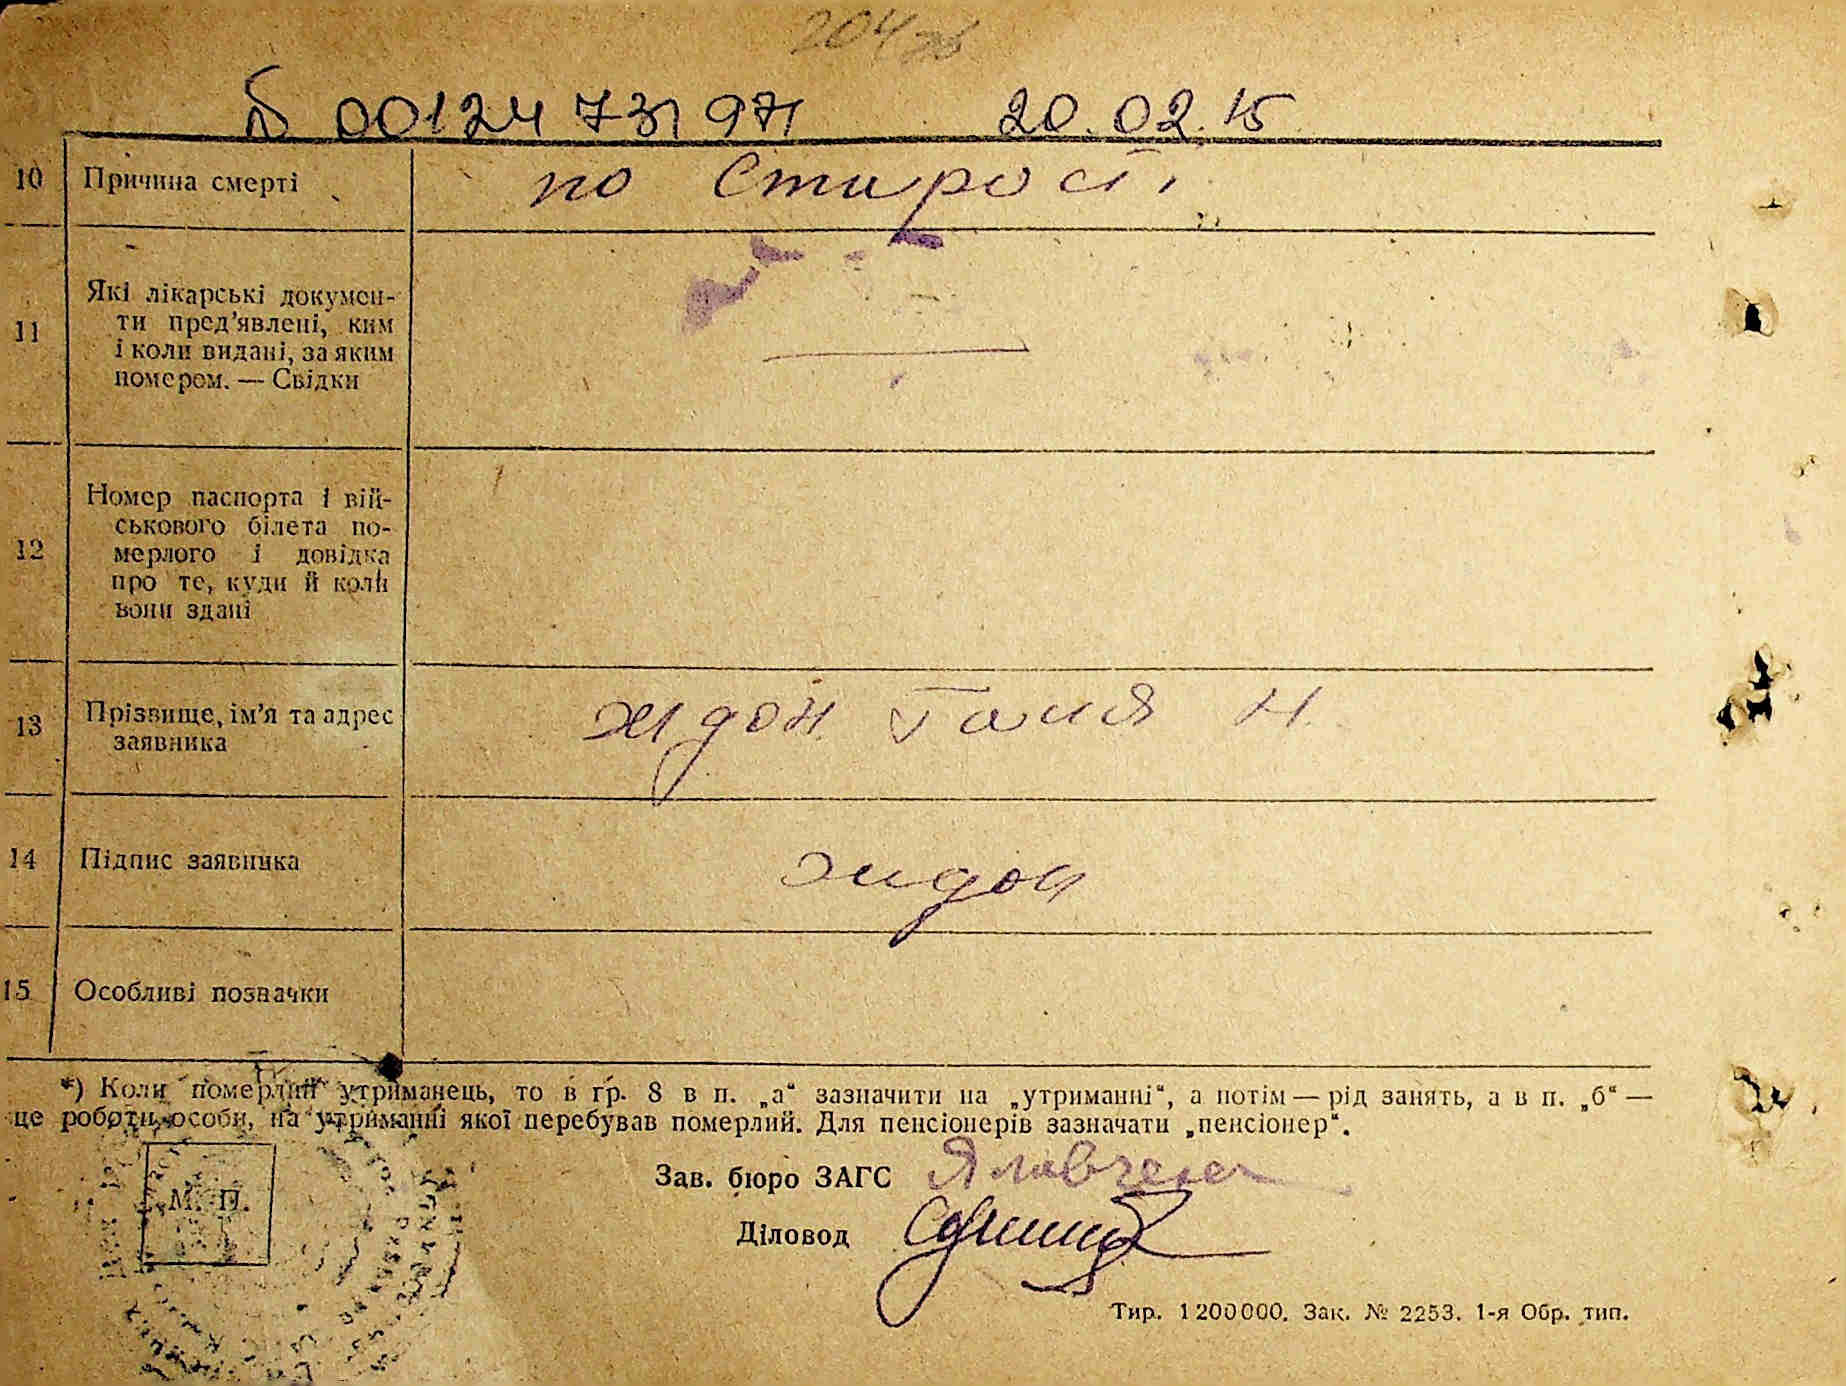 204зв
00124731971 20.02.15
10 Причина смерті по старості
11 Які лікарські докумен-
ти пред'явлені, ким
і коли видані, за яким
номером. — Свідки
12 Номер паспорта і вій-
ськового білета по-
мерлого і довідка
про те, куди й коли
вони здані
13 Прізвище, ім'я та адрес
заявника
Жидон Галя Н.
14 Підпис заявника Жидон
15 Особливі позначки
*) Коли померлий утриманець, то в гр. 8 в п. „а“ зазначити на „утриманні“, а потім — рід занять, а в п. „б“ —
це роботи особи, на утриманні якої перебував померлий. Для пенсіонерів зазначати „пенсіонер“.
М. П.
Зав. бюро ЗАГС
Діловод
Тир. 1200000. Зак. № 2253. 1-я Обр. тип.